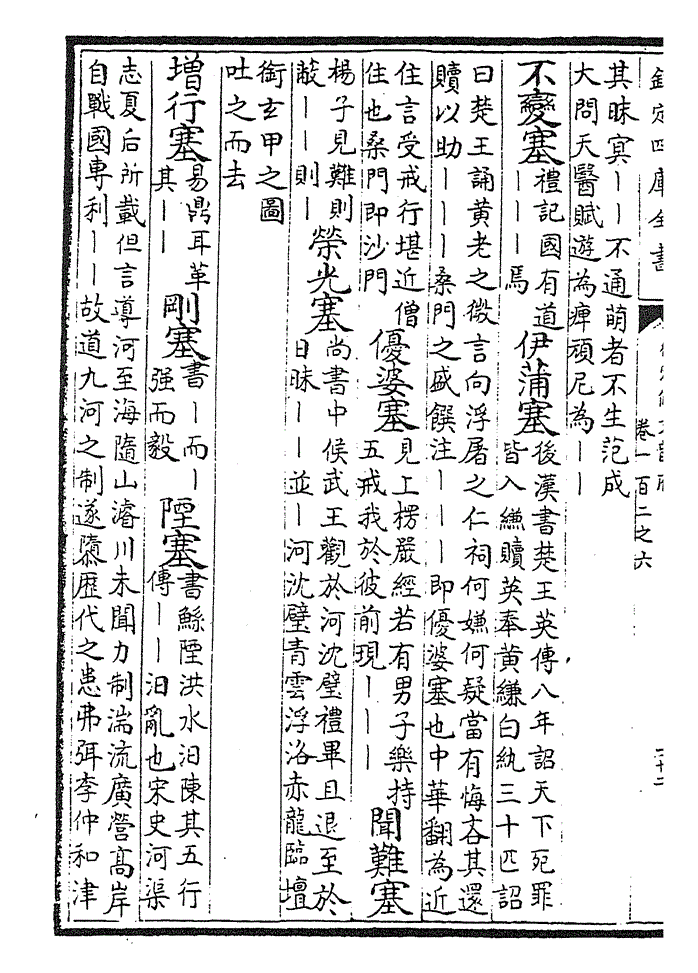 欽定四庫全書
卷一百二之六
其昧冥丨丨不通萌者不生范成
大問天醫賦遊為痺頑尼為丨丨
不變塞
禮記國有道
丨丨丨焉
伊蒲塞
後漢書楚王英傳八年詔天下死罪
皆入縑贖英奉黃縑白紈三十匹詔
曰楚王誦黃老之微言向浮屠之仁祠何嫌何疑當有悔吝其還
贖以助丨丨丨桑門之盛饌注丨丨丨即優婆塞也中華翻為近
住言受戒行堪近僧
住也桑門即沙門
優婆塞
見上楞嚴經若有男子樂持
五戒我於彼前現丨丨丨
聞難塞
楊子見難則
蔽丨丨則丨
榮光塞
尚書中候武王觀於河沈璧禮畢且退至於
日昧丨丨並丨河沈璧青雲浮洛赤龍臨壇
銜玄甲之圖
吐之而去
增行塞
易鼎耳革
其丨丨
剛塞
書丨而丨
强而毅
陻塞
書鯀陻洪水汨陳其五行
傳丨丨汨亂也宋史河渠
志夏后所載但言導河至海隨山濬川未聞力制湍流廣營高岸
自戰國專利丨丨故道九河之制遂隳歷代之患弗弭李仲和津